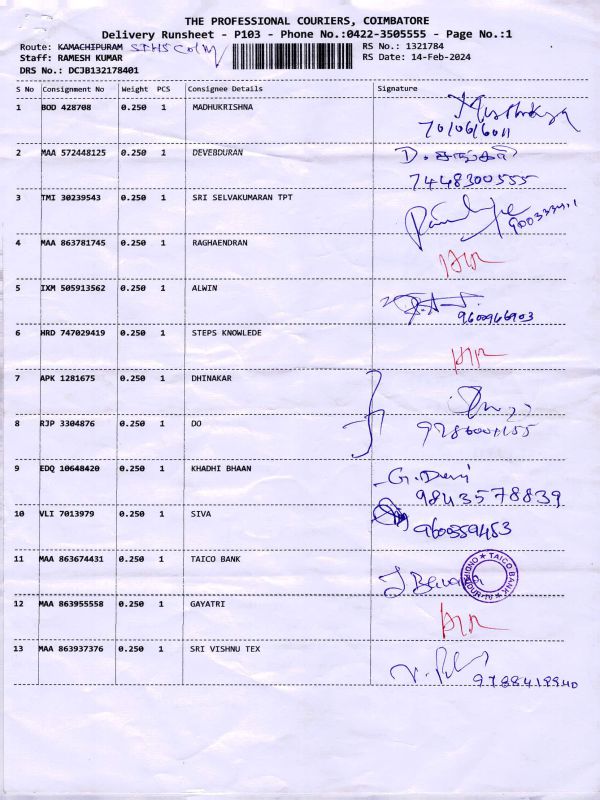 THE PROFESSIONAL COURIERS, COIMBATORE
Delivery Runsheet - P103 - Phone No.:0422-3505555 - Page No.:1
Route: KAMACHIPURAM RS No.: 1321784
Staff: RAMESH KUMAR RS Date: 14-Feb-2024
DRS No.: DCJB132178401
S No Consignment No Weight PCS Consignee Details Signature
1 BOD 428708 0.250 1 MADHUKRISHNA
2 MAA 572448125 0.250 1 DEVEBDURAN
7448300555
3 TMI 30239543 0.250 1 SRI SELVAKUMARAN TPT
4 MAA 863781745 0.250 1 RAGHAENDRAN
5 IXM 505913562 0.250 1 ALWIN
9600946903
6 HRD 747029419 0.250 1 STEPS KNOWLEDE
7 APK 1281675 0.250 1 DHINAKAR
8 RJP 3304876 0.250 1 DO
9 EDQ 10648420 0.250 1 KHADHI BHAAN G. Devi
9843578839
10 VLI 7013979 0.250 1 SIVA
11 MAA 863674431 0.250 1 TAICO BANK TAICO BANK
12 MAA 863955558 0.250 1 GAYATRI
13 MAA 863937376 0.250 1 SRI VISHNU TEX
9788418940